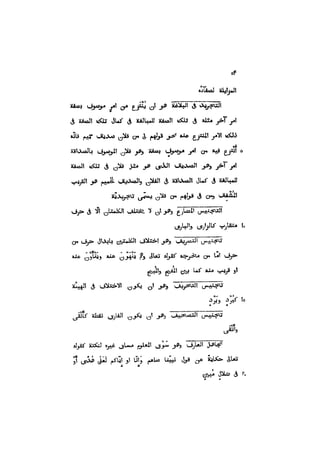 ٥٣
الموازية لصفاته
التجريد فى البلاغة هو ان يُنْتزع من امرٍ موصوف بصفة
امر آخر مثله فى تلك الصفة للمبالغة فى كمال تلك الصفة فى
ذلك الامر المنتزع عنه نحو قولهم لى من فلان صديق حميم فانّه
٥ اُنْتزع فيه من امر موصوف بصفة وهو فلان الموصوف بالصداقة
امر آخر وهو الصديق الذى هو مثل فلان فى تلك الصفة
للمبالغة فى كمال الصداقة فى الفلان والصديق الحميم هو القريب
المُشْفق ومن فى قولهم من فلان يسمّى تجريديّة
التجنيس المضارع وهو ان لا تختلف الكلمتان الّا فى حرف
١٠ متقارب كالدارى والبارى
تجنيس التصريف وهو اختلاف الكلمتين بابدال حرف من
حرف امّا من مخرجه كقوله تعالى وَهُمْ يَنْهَوْنَ عنه وَيَنْأَوْنَ عنه
او قريب منه كما بين المُفيح والمُبيح
تجنيس التحريف وهو ان يكون الاختلاف فى الهيئة
١٥ كَبُرْدٍ وَبَرْدٍ
تجنيس التصحيف وهو ان يكون الفارق نقطة كأنْقى
وأتْقى
تجاهل العارف وهو سَوْق المعلوم مساق غيره لنكتة كقوله
تعالى حكايةً عن قول نبيّنا صلعم وَإنّا او إيّاكم لَعَلَى هُدًى أَوْ
٢٠ فى ضلال مُبينٍ